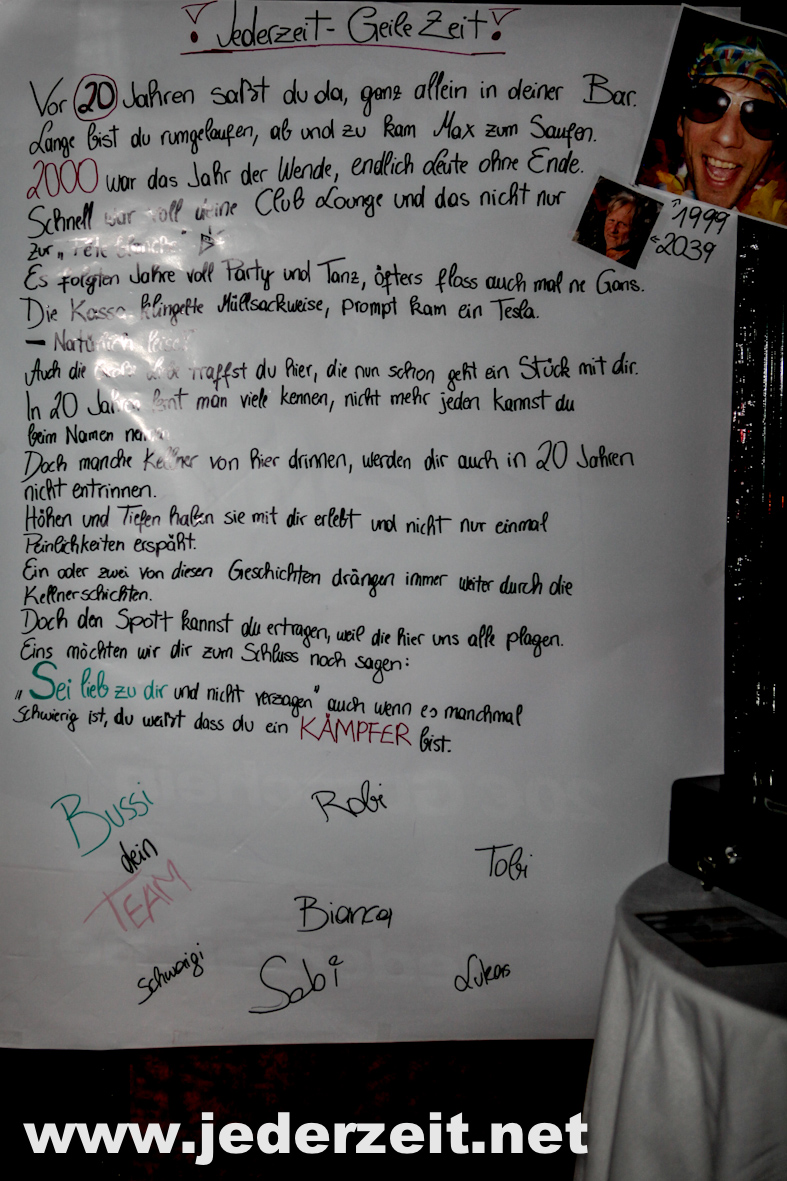 ! Jederzeit - Geile Zeit !
Vor 20 Jahren saßt du da, ganz allein in deiner Bar.
Lange bist du rumgelaufen, ab und zu kam Max zum Saufen.
2000 war das Jahr der Wende, endlich Leute ohne Ende.
Schnell war voll deine Club Lounge und das nicht nur
zur „Tete Blanche"
↑1999
←2039
Es folgten Jahre voll Party und Tanz, öfters floss auch mal ne Gans.
Die Kassa klingelte Müllsackweise, prompt kam ein Tesla.
– Natürlich leise!
Auch die traffst du hier, die nun schon geht ein Stück mit dir.
In 20 Jahren lernt man viele kennen, nicht mehr jeden kannst du
beim Namen nennen.
Doch manche Kellner von hier drinnen, werden dir auch in 20 Jahren
nicht entrinnen.
Höhen und Tiefen haben sie mit dir erlebt und nicht nur einmal
Peinlichkeiten erspäht.
Ein oder zwei von diesen Geschichten drängen immer weiter durch die
Kellnerschichten.
Doch den Spott kannst du ertragen, weil die hier uns alle plagen.
Eins möchten wir dir zum Schluss noch sagen:
„Sei lieb zu dir und nicht verzagen" auch wenn es manchmal
schwierig ist, du weißt dass du ein KÄMPFER bist.
Bussi
dein
TEAM
Robi
Tobi
Bianca
Schwoagi
Sabi
Lukas
www.jederzeit.net